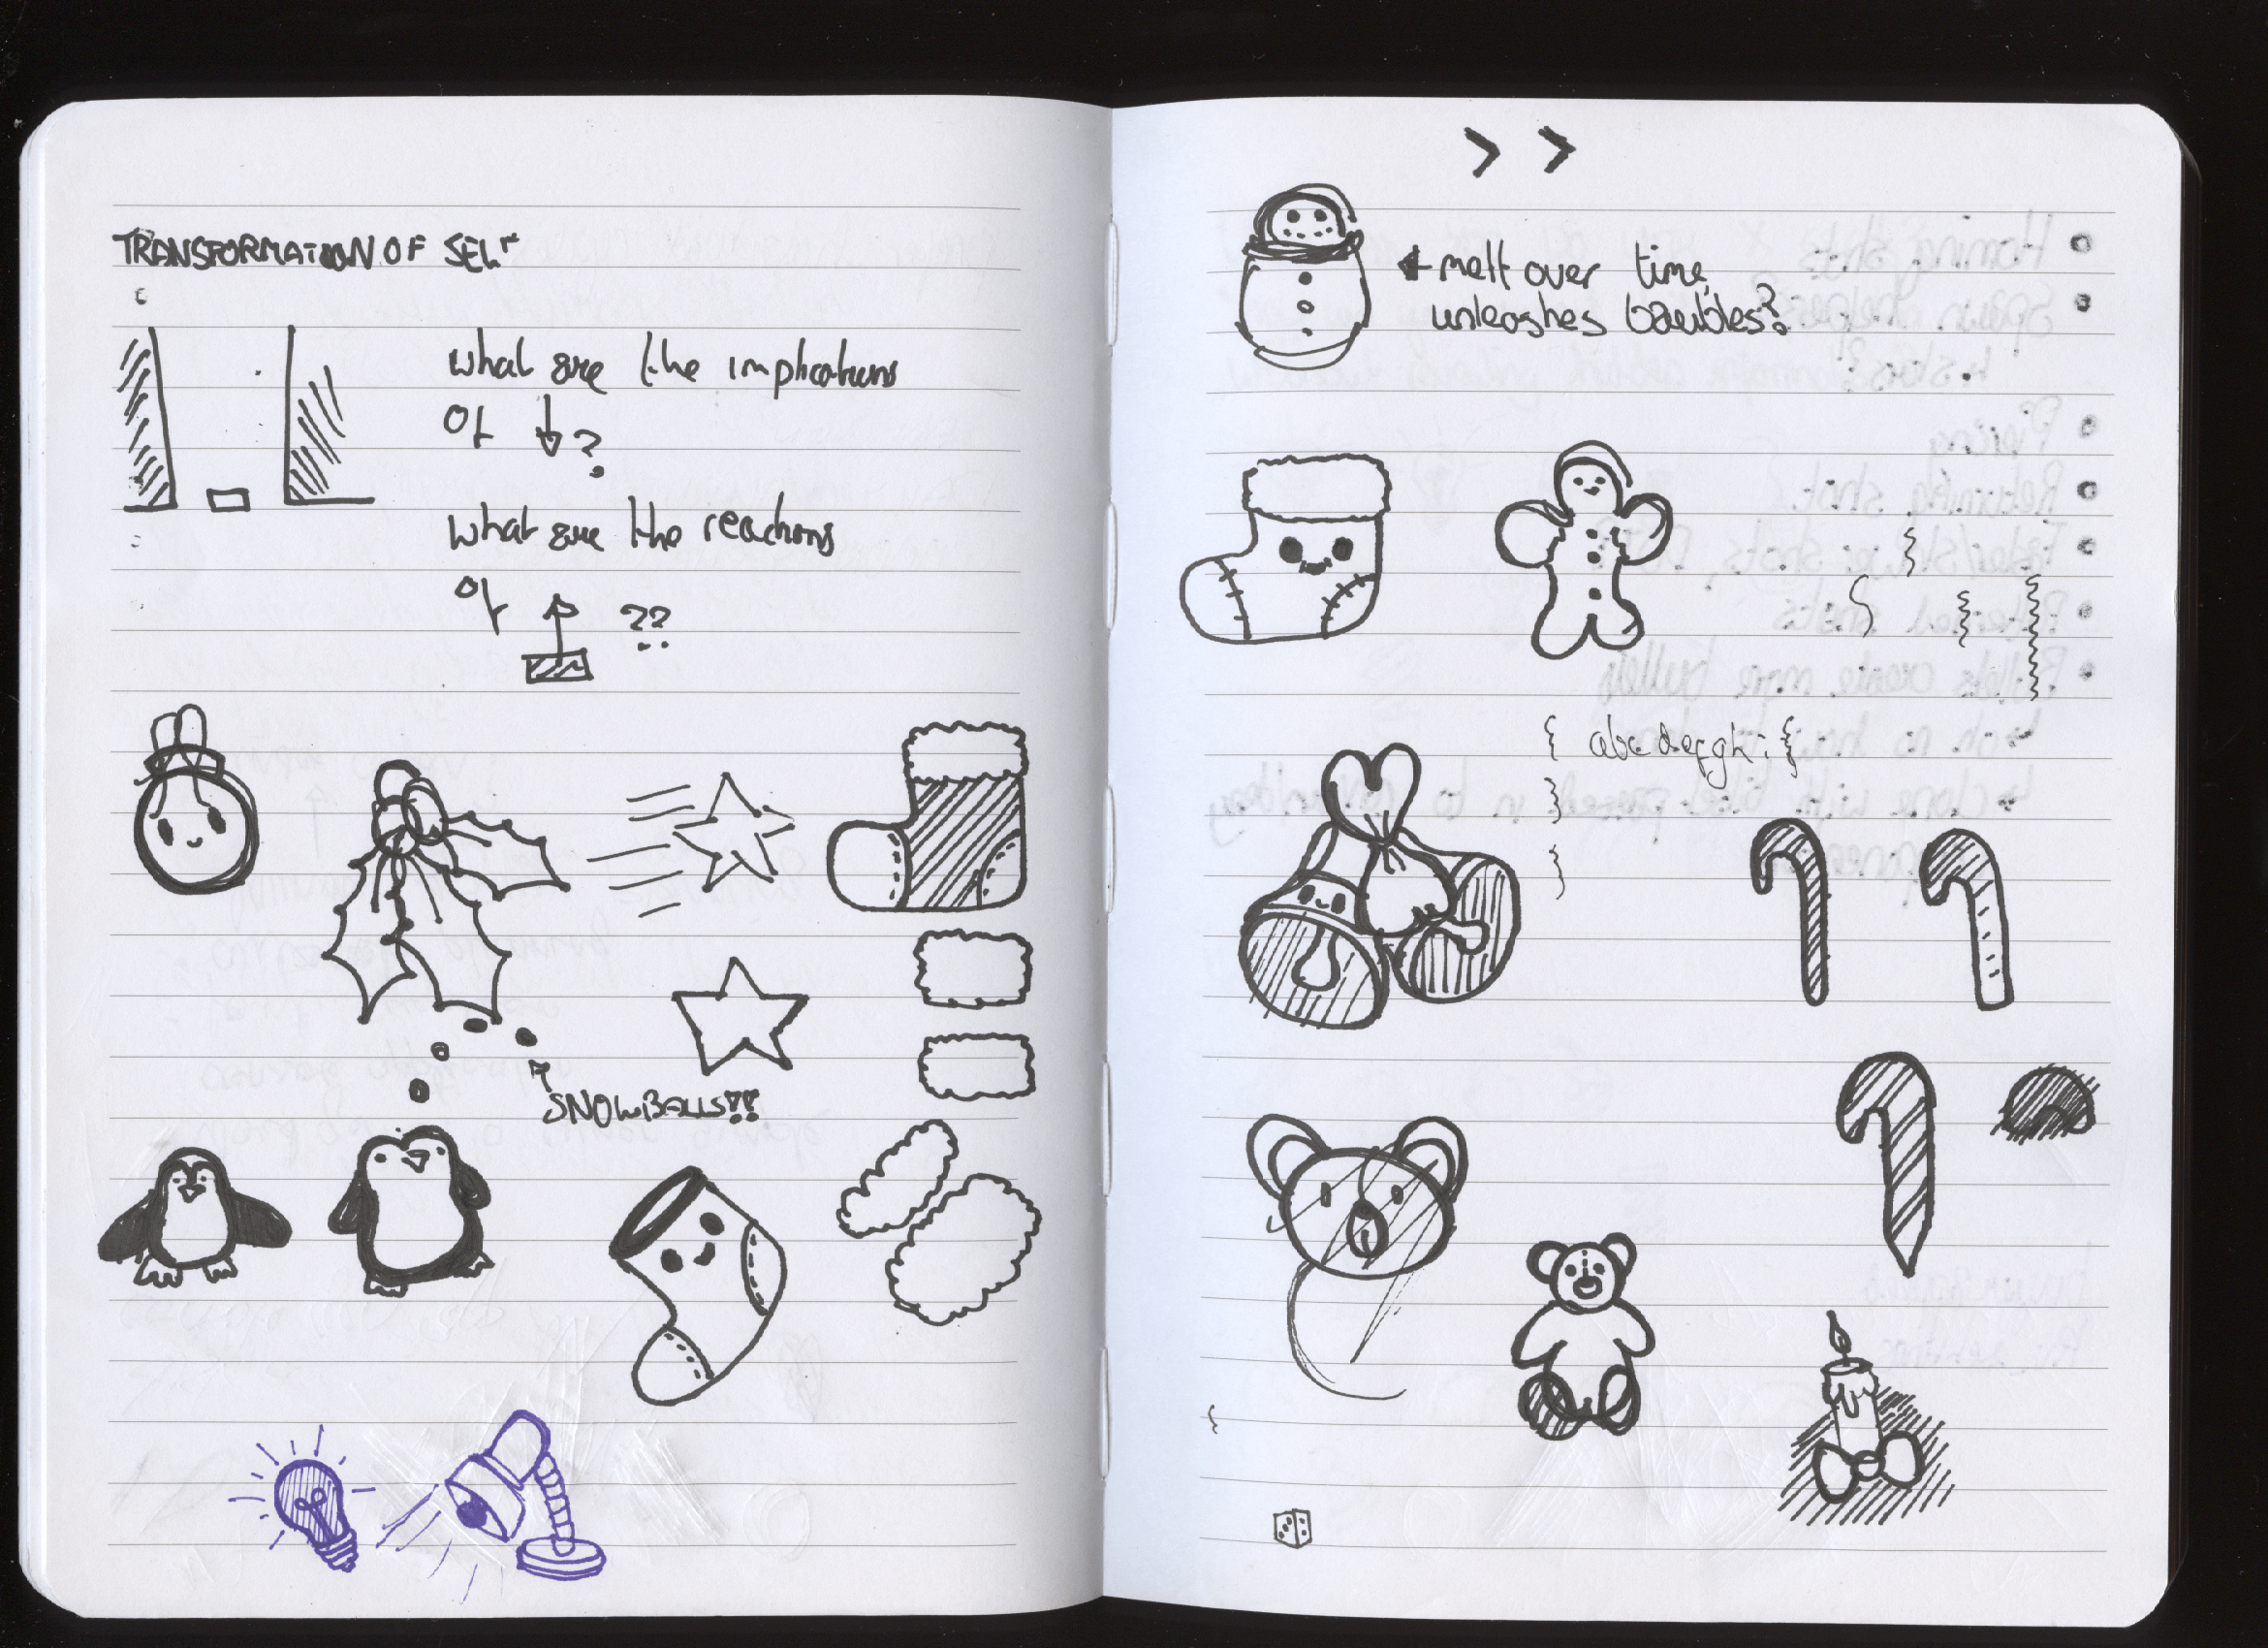 TRANSFORMATION OF SELF
what are the implications
of ↓ ?
what are the reactions
of ↑ ??
SNOWBALLS!!
> >
← melt over time,
unleashes baubles?
{ abcdefgh: }